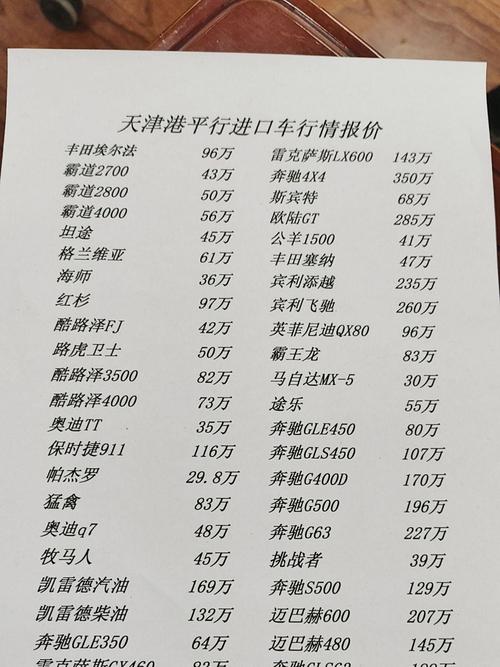 天津港平行进口车行情报价
丰田埃尔法 96万 雷克萨斯LX600 143万
霸道2700 43万 奔驰4X4 350万
霸道2800 50万 斯宾特 68万
霸道4000 56万 欧陆GT 285万
坦途 45万 公羊1500 41万
格兰维亚 61万 丰田塞纳 47万
海师 36万 宾利添越 235万
红杉 97万 宾利飞驰 260万
酷路泽FJ 42万 英菲尼迪QX80 96万
路虎卫士 50万 霸王龙 83万
酷路泽3500 82万 马自达MX-5 30万
酷路泽4000 73万 途乐 55万
奥迪TT 35万 奔驰GLE450 80万
保时捷911 116万 奔驰GLS450 107万
帕杰罗 29.8万 奔驰G400D 170万
猛禽 83万 奔驰G500 196万
奥迪q7 48万 奔驰G63 227万
牧马人 45万 挑战者 39万
凯雷德汽油 169万 奔驰S500 129万
凯雷德柴油 132万 迈巴赫600 207万
奔驰GLE350 64万 迈巴赫480 145万
雷克萨斯GX460